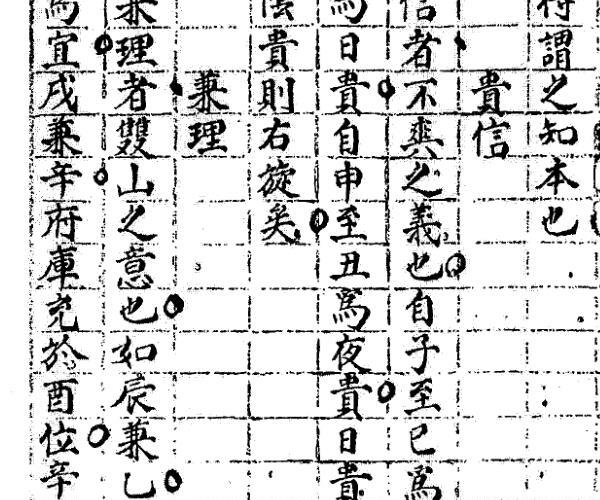 謂之知本也
貴信
者不爽之義也自子至巳為
日貴自申至丑為夜貴日貴
貴則右旋矣
兼理
兼理者雙山之意也如辰兼乙
宜戌兼辛府庫充於酉位辛